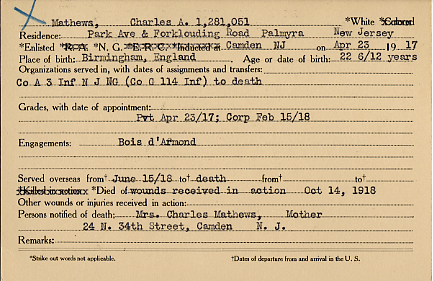 Mathews, Charles A. 1,281,051 *White *Colored
Residence: Park Ave & Forklouding Road Palmyra New Jersey
*Enlisted *R.A. *N. G. *E.R.C. *Inducted at Camden NJ on Apr 23 1917
Place of birth: Birmingham, England Age or date of birth: 22 6/12 years
Organizations served in, with dates of assignments and transfers:
Co A 3 Inf N J NG (Co G 114 Inf) to death
Grades, with date of appointment:
Pvt Apr 23/17; Corp Feb 15/18
Engagements: Bois d'Armond
Served overseas from† June 15/18 to† death from† to†
*Killed in action *Died of wounds received in action Oct 14, 1918
Other wounds or injuries received in action:
Persons notified of death: Mrs. Charles Mathews, Mother
24 N. 34th Street, Camden N. J.
Remarks:
*Strike out words not applicable. †Dates of departure from and arrival in the U. S.